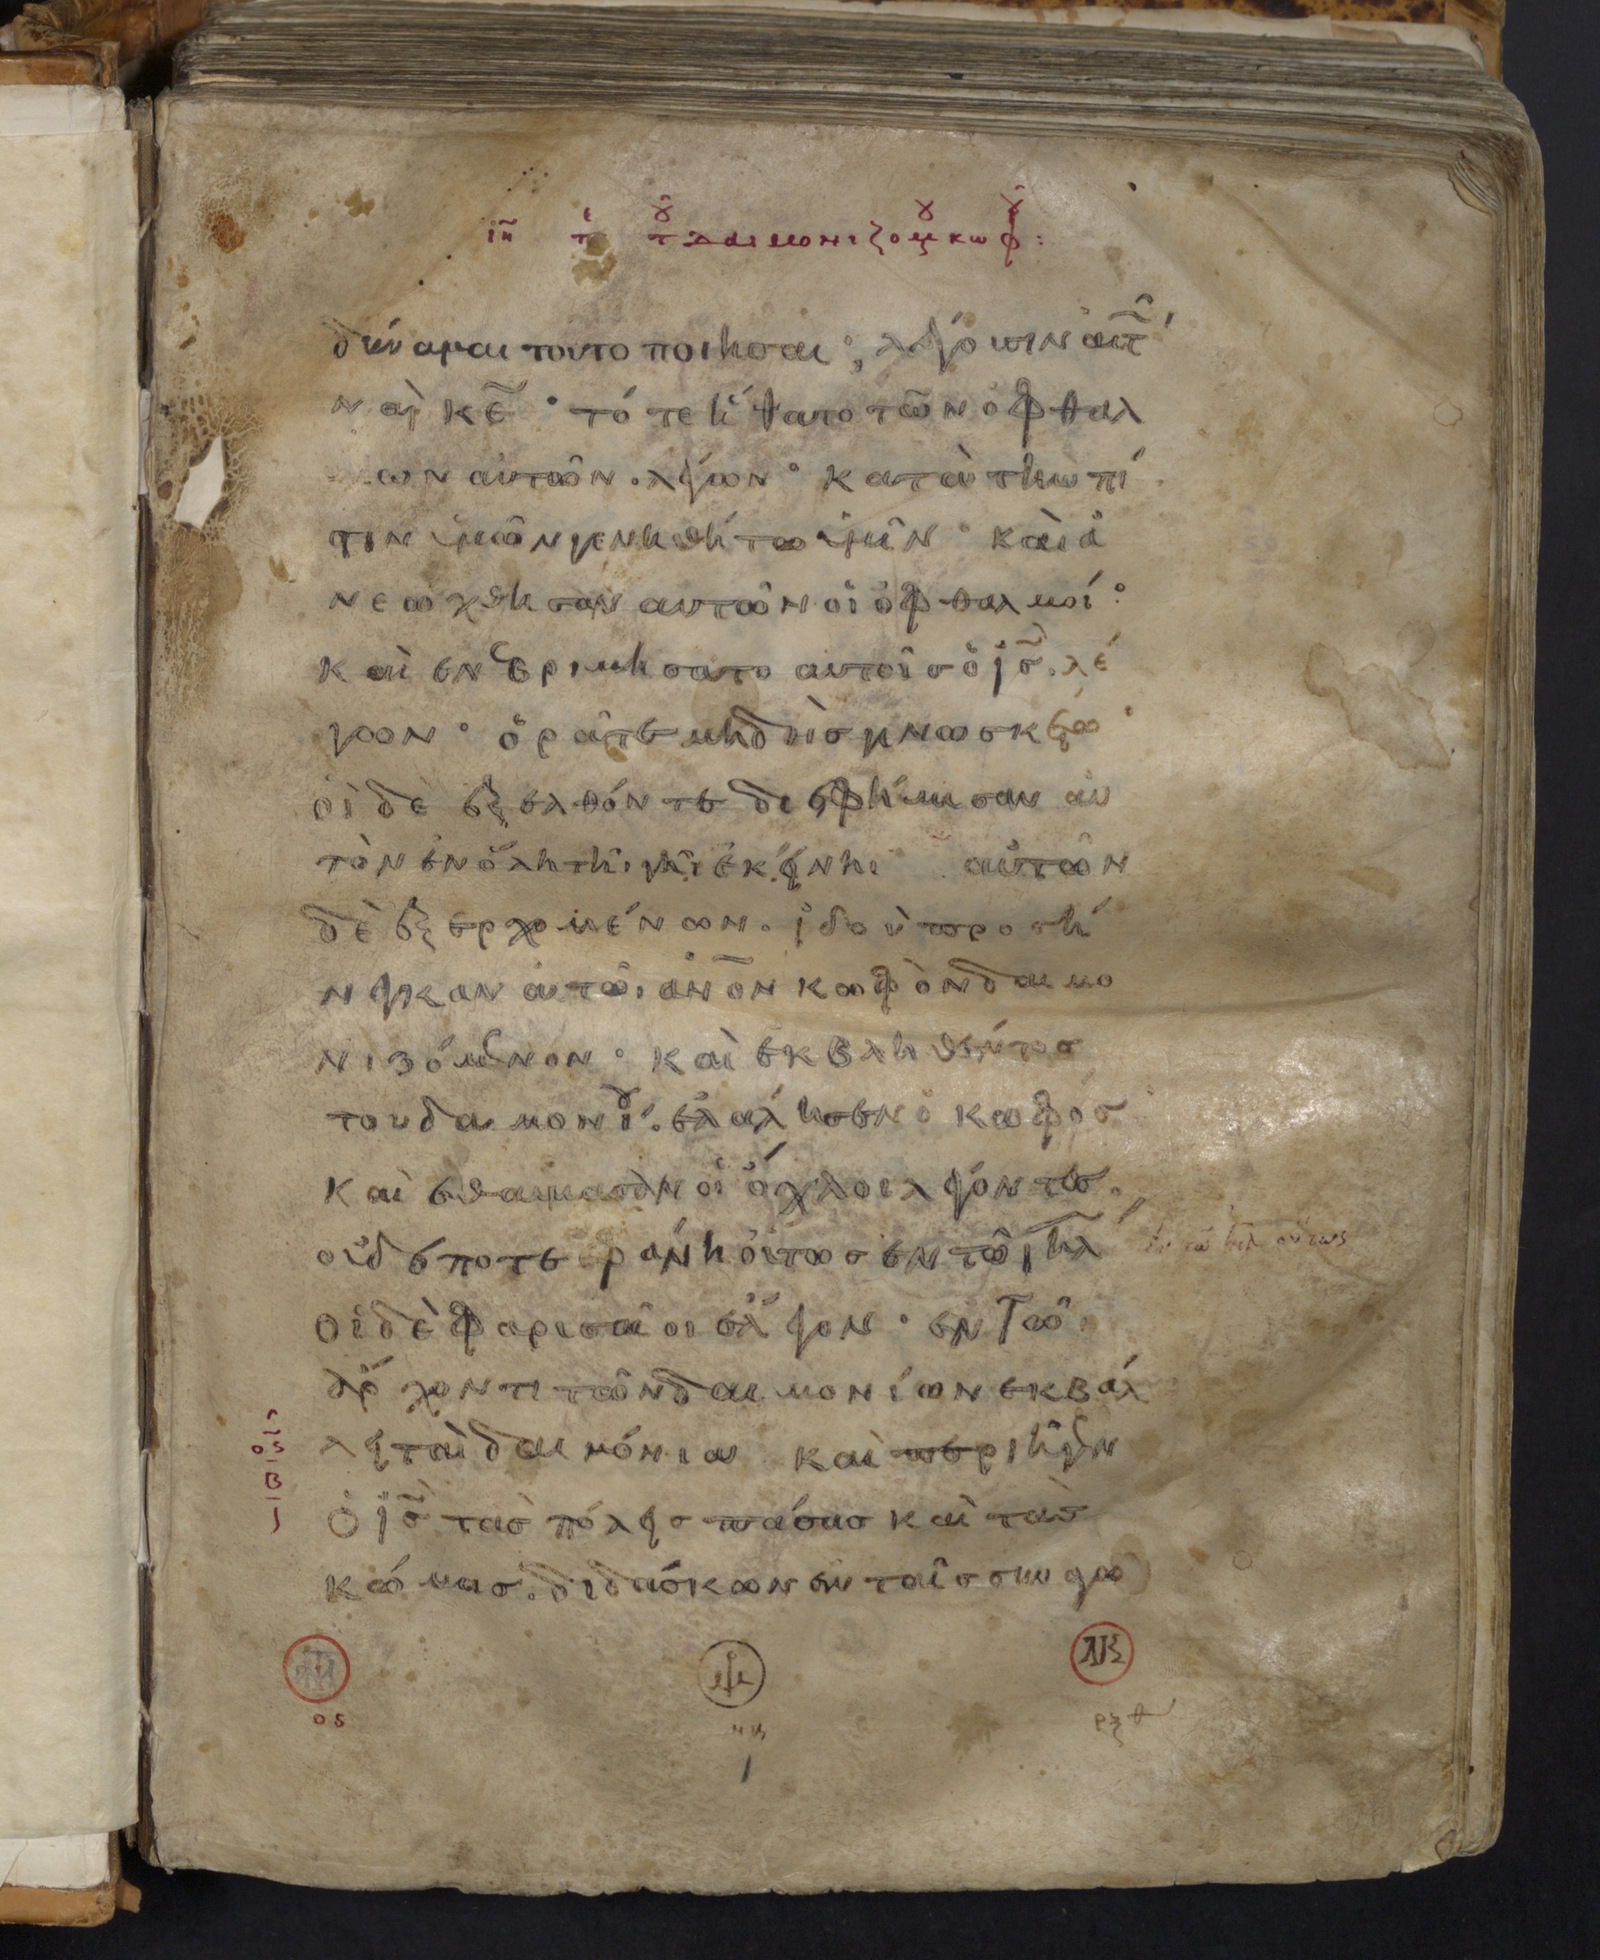 ιη πε του δαιμονιζομενου κωφου:
δύναμαι τοῦτο ποιῆσαι; λέγουσιν αὐτῶ
ναὶ κε̅· τότε ἥψατο τῶν ὀφθαλ
μῶν αὐτῶν. λέγων· κατὰ τὴν πί
στιν ὑμῶν γενηθήτω ὑμῖν· καὶ ἀ
νεώχθησαν αὐτῶν οἱ ὀφθαλμοί·
καὶ ἐνεβριμήσατο αὐτοῖσ ὁ ισ̅. λέ
γων· ὁρᾶτε μηδεὶσ γινωσκέτω·
οἱ δὲ ἐξελθόντες διεφήμισαν αὐ
τὸν ἐν ὅλη τῆι γῆι ἐκείνηι αὐτῶν
δὲ ἐξερχομένων. ἰδοὺ προσή
νεγκαν αὐτῶι αν̅ον κωφὸν δαιμο
νιζόμενον· καὶ ἐκβληθέντοσ
τοῦ δαιμονίου. ἐλάλησεν ὁ κωφόσ
καὶ ἐθαύμασαν οἱ ὄχλοι λέγοντες.
οὐδέποτε ἐφάνη οὕτωσ ἐν τῶ ιη̅λ
ἐν τῶ ιηλ οὕτως
οἱ δὲ φαρισαῖοι ἔλεγον· ἐν τῶ
ἄρχοντι τῶν δαιμονίων ἐκβάλ
λει τὰ δαιμόνια καὶ περιῆγεν
ὁ ισ̅ τὰσ πόλεισ πάσασ καὶ τὰσ
κώμασ. διδάσκων ἐν ταῖσ συναγω
ος
β
ος
ρξθ